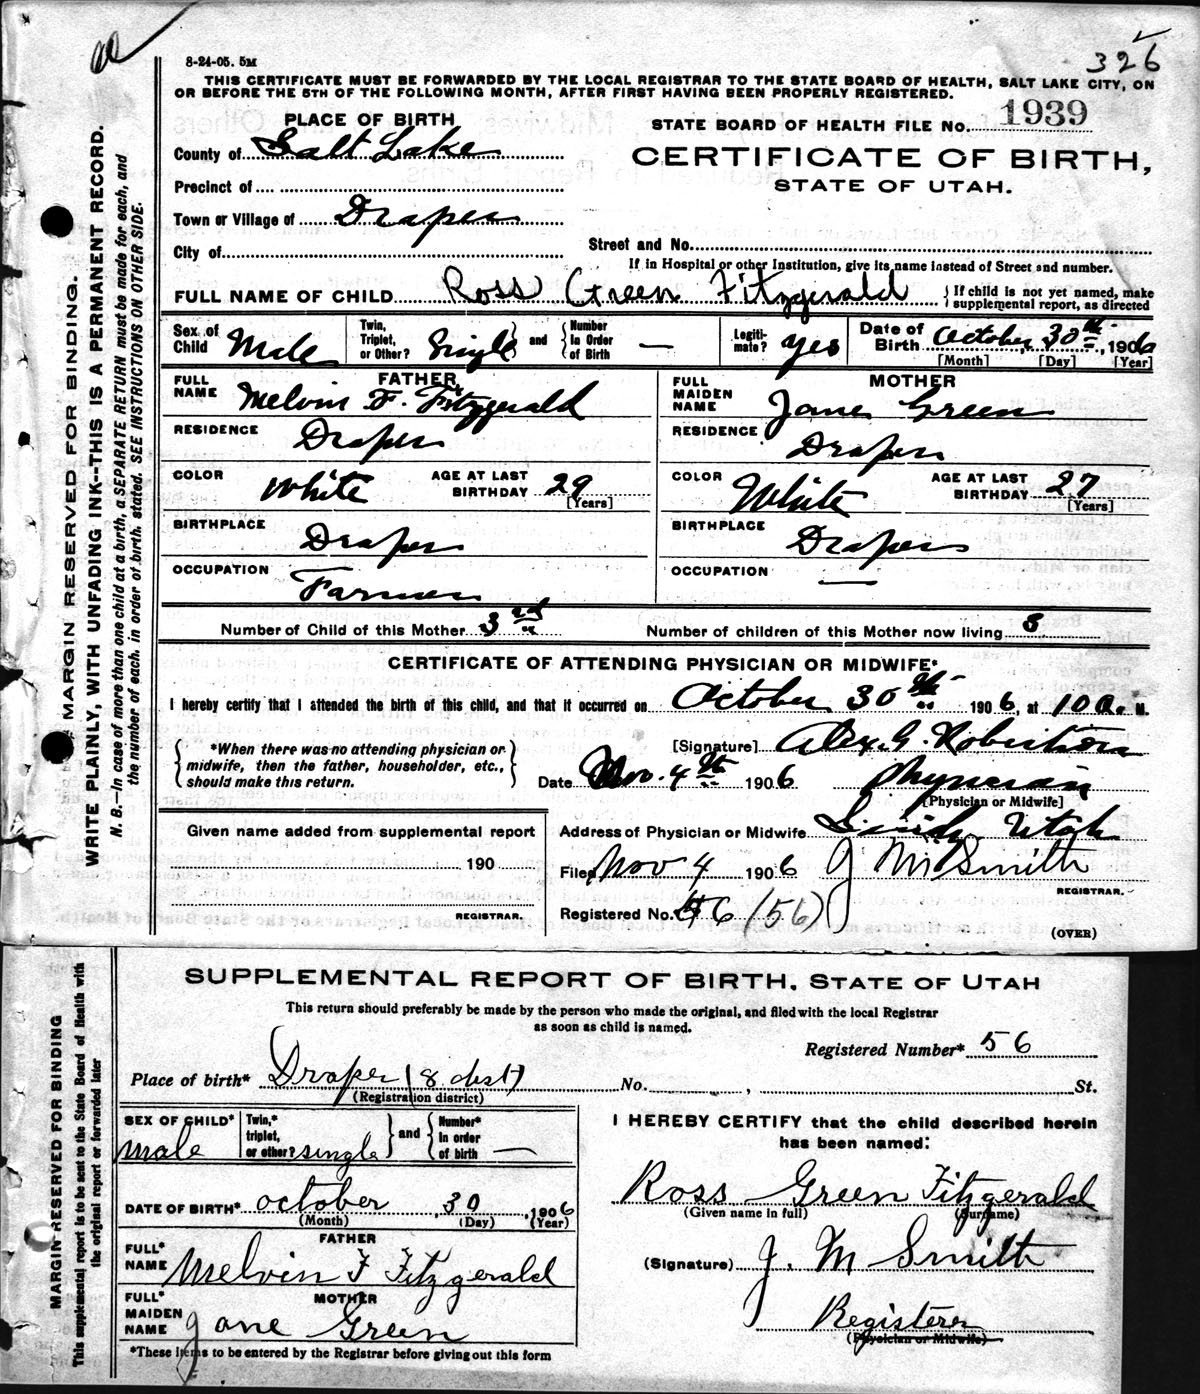 326
8-24-05. 5M
THIS CERTIFICATE MUST BE FORWARDED BY THE LOCAL REGISTRAR TO THE STATE BOARD OF HEALTH, SALT LAKE CITY, ON
OR BEFORE THE 5TH OF THE FOLLOWING MONTH, AFTER FIRST HAVING BEEN PROPERLY REGISTERED.
PLACE OF BIRTH
STATE BOARD OF HEALTH FILE No. 1939
County of Salt Lake
CERTIFICATE OF BIRTH,
Precinct of
STATE OF UTAH.
Town or Village of Draper
City of
Street and No.
If in Hospital or other Institution, give its name instead of Street and number.
FULL NAME OF CHILD Ross Green Fitzgerald { If child is not yet named, make
supplemental report, as directed
Sex of Child Male Twin, Triplet, or Other? Single and Number In Order of Birth — Legitimate? yes Date of Birth October 30th, 1906
[Month] [Day] [Year]
FATHER
FULL NAME Melvin F. Fitzgerald
RESIDENCE Draper
COLOR White AGE AT LAST BIRTHDAY 29
[Years]
BIRTHPLACE Draper
OCCUPATION Farmer
MOTHER
FULL MAIDEN NAME Jane Green
RESIDENCE Draper
COLOR White AGE AT LAST BIRTHDAY 27
[Years]
BIRTHPLACE Draper
OCCUPATION —
Number of Child of this Mother 3rd Number of children of this Mother now living 3
CERTIFICATE OF ATTENDING PHYSICIAN OR MIDWIFE*
I hereby certify that I attended the birth of this child, and that it occurred on October 30th 1906, at 10 A. M.
{ *When there was no attending physician or
midwife, then the father, householder, etc.,
should make this return. }
[Signature] Alex. G. Robertson
Date Nov. 4th 1906 Physician
[Physician or Midwife]
Given name added from supplemental report
190
REGISTRAR.
Address of Physician or Midwife Utah
Filed Nov 4 1906 J M Smith
REGISTRAR.
Registered No. 56 (56)
(OVER)
MARGIN RESERVED FOR BINDING.
WRITE PLAINLY, WITH UNFADING INK--THIS IS A PERMANENT RECORD.
N. B.—In case of more than one child at a birth, a SEPARATE RETURN must be made for each, and
the number of each, in order of birth, stated. SEE INSTRUCTIONS ON OTHER SIDE.
SUPPLEMENTAL REPORT OF BIRTH, STATE OF UTAH
This return should preferably be made by the person who made the original, and filed with the local Registrar
as soon as child is named.
Registered Number* 56
Place of birth* Draper (8 dist) No. , St.
(Registration district)
SEX OF CHILD* male Twin,* triplet, or other? single and Number* in order of birth —
DATE OF BIRTH* October, 30, 1906
(Month) (Day) (Year)
FATHER
FULL* NAME Melvin F Fitzgerald
MOTHER
FULL* MAIDEN NAME Jane Green
*These items to be entered by the Registrar before giving out this form
I HEREBY CERTIFY that the child described herein
has been named:
Ross Green Fitzgerald
(Given name in full) (Surname)
(Signature) J. M Smith
Registerer
(Physician or Midwife)
MARGIN RESERVED FOR BINDING
This supplemental report is to be sent to the State Board of Health with
the original report or forwarded later